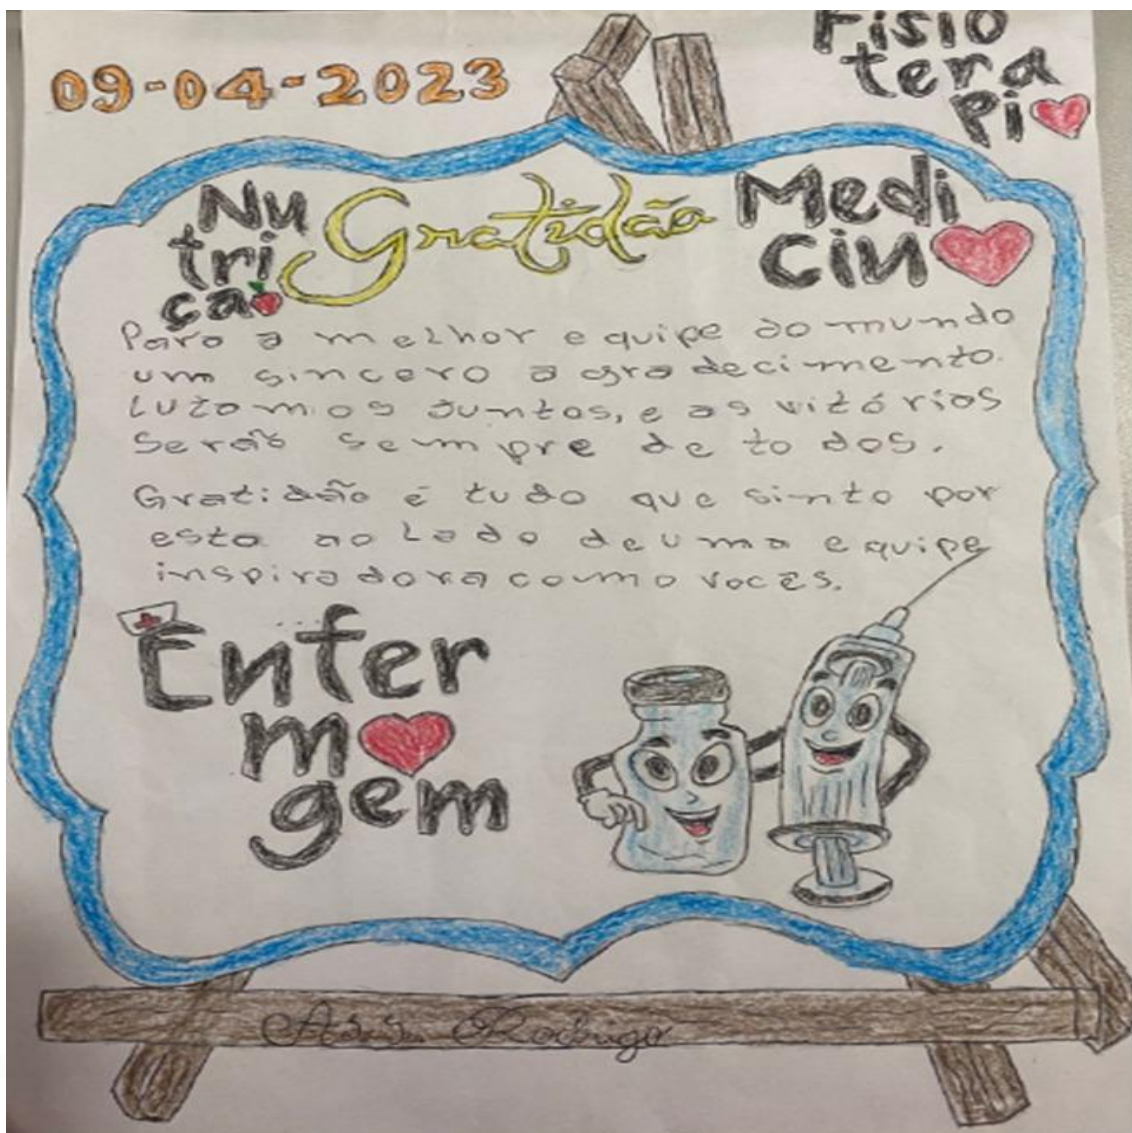 09-04-2023
Fisio
tera
pi
Nu
tri
ça
Gratidão
Medi
cin
Para a melhor equipe do mundo
um sincero agradecimento.
Lutamos juntos, e as vitórias
serão sempre de todos.
Gratidão é tudo que sinto por
esta ao lado de uma equipe
inspiradora coumo voces.
Enfer
m
gem
Ass. Rodrigo